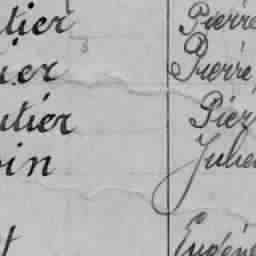 tier Pierre
ier Pierre
utier Pier
in Julie
t Eugène